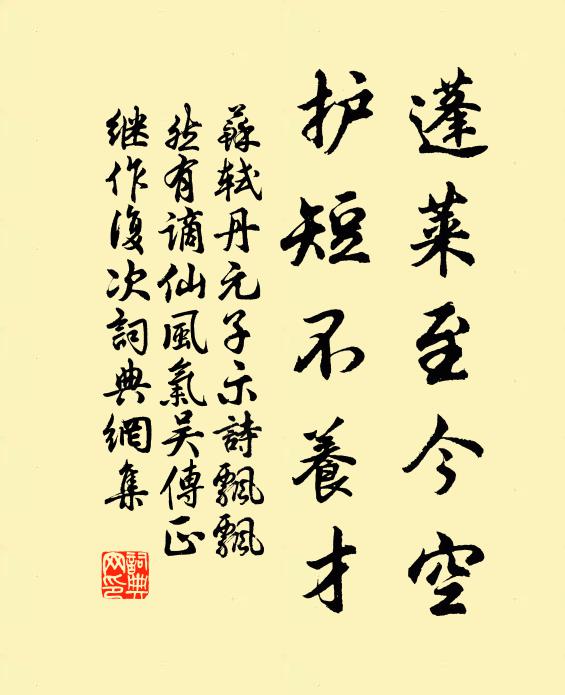 蓬莱至今空
护短不養才
蘇軾丹元子示詩飄飄
然有謫仙風氣吴傳正
继作復次詞典網集
詞典
网印